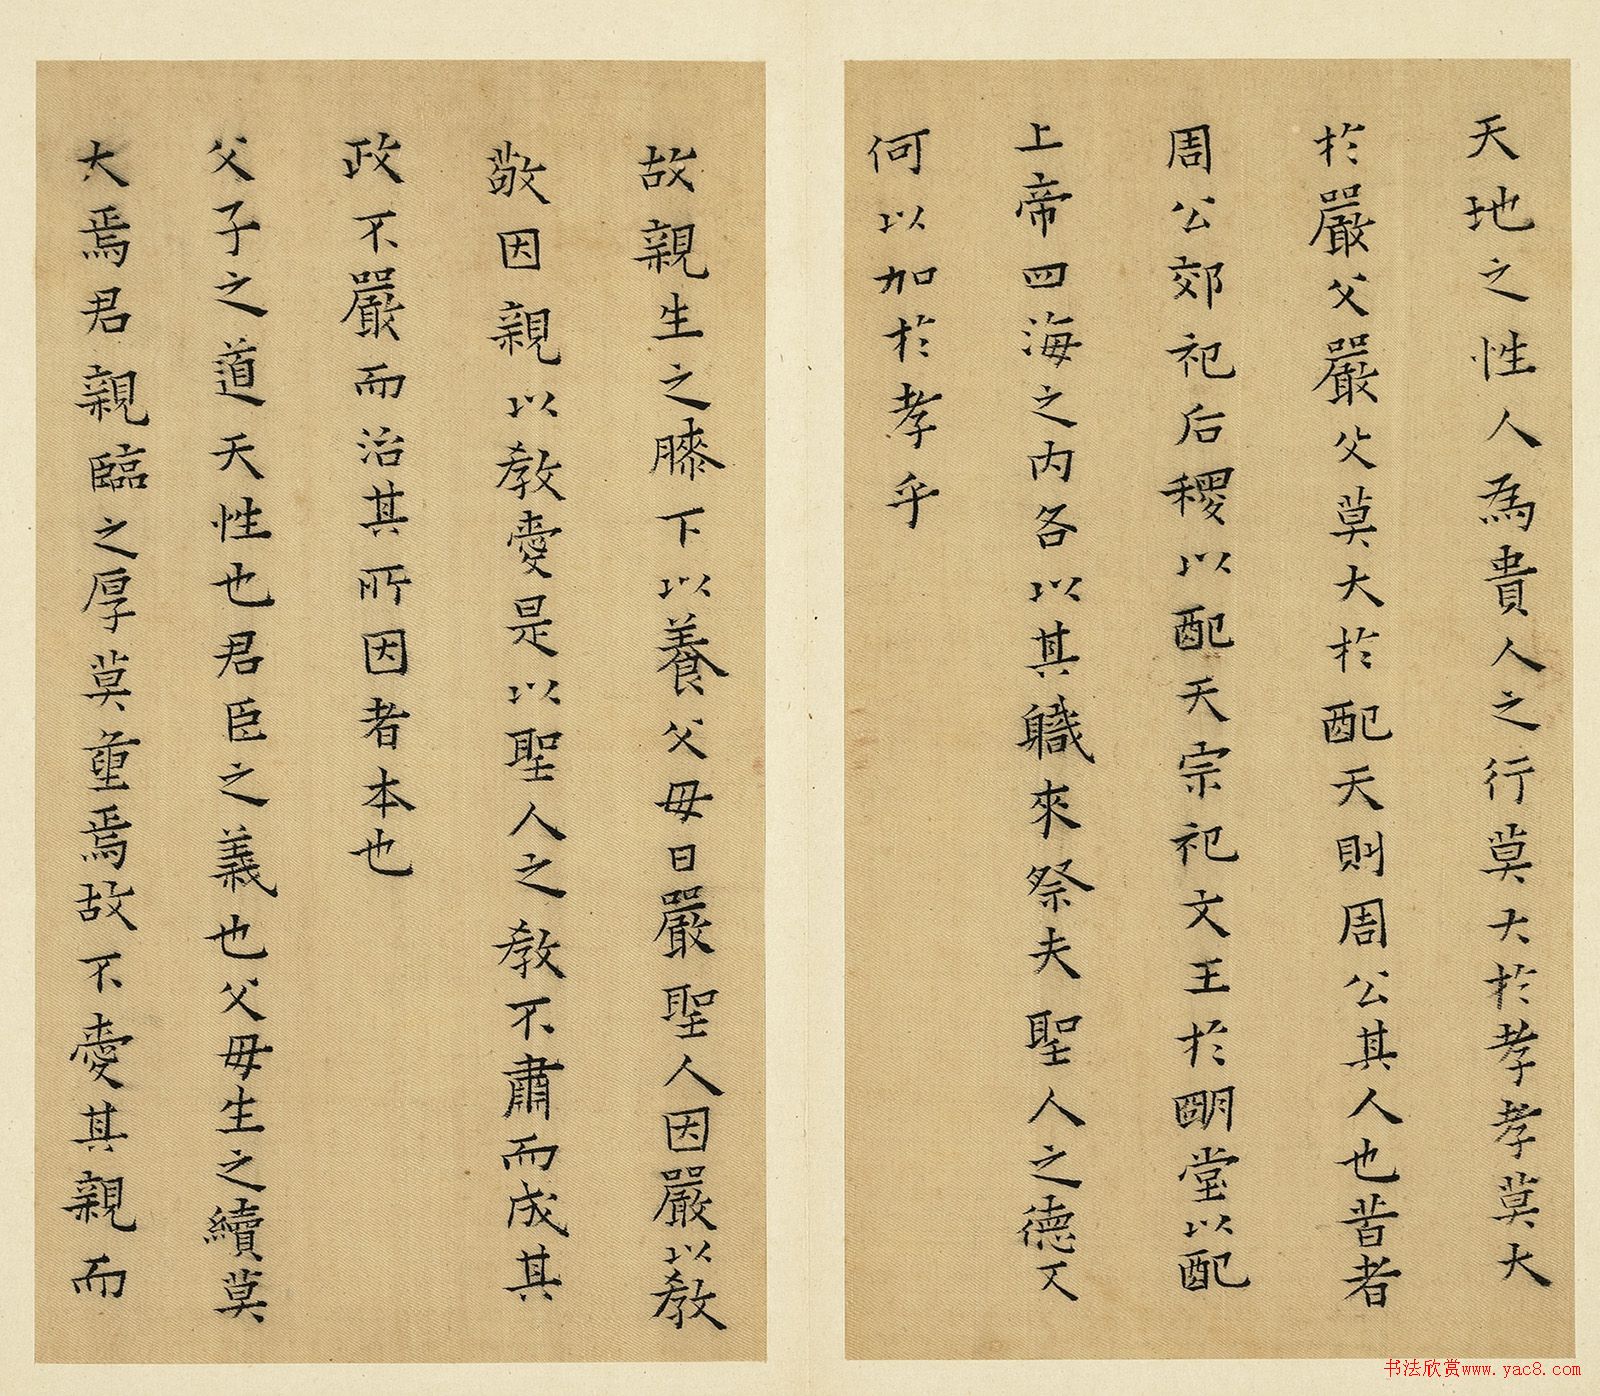 天地之性人為貴人之行莫大於孝孝莫大
於嚴父嚴父莫大於配天則周公其人也昔者
周公郊祀后稷以配天宗祀文王於朙堂以配
上帝四海之內各以其職來祭夫聖人之德又
何以加於孝乎
故親生之膝下以養父母日嚴聖人因嚴以教
敬因親以教愛是以聖人之教不肅而成其
政不嚴而治其所因者本也
父子之道天性也君臣之義也父母生之續莫
大焉君親臨之厚莫重焉故不愛其親而
书法欣赏www.yac8.com